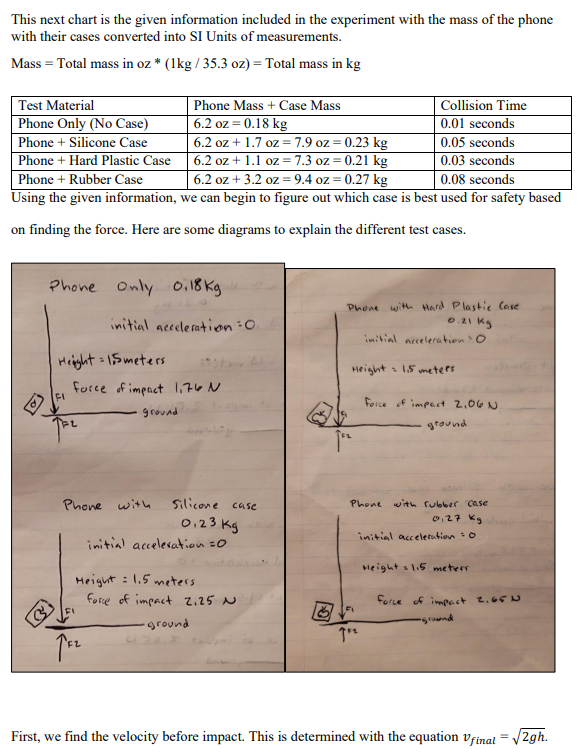 This next chart is the given information included in the experiment with the mass of the phone
with their cases converted into SI Units of measurements.
Mass = Total mass in oz * (1kg / 35.3 oz) = Total mass in kg
Test Material Phone Mass + Case Mass Collision Time
Phone Only (No Case) 6.2 oz = 0.18 kg 0.01 seconds
Phone + Silicone Case 6.2 oz + 1.7 oz = 7.9 oz = 0.23 kg 0.05 seconds
Phone + Hard Plastic Case 6.2 oz + 1.1 oz = 7.3 oz = 0.21 kg 0.03 seconds
Phone + Rubber Case 6.2 oz + 3.2 oz = 9.4 oz = 0.27 kg 0.08 seconds
Using the given information, we can begin to figure out which case is best used for safety based
on finding the force. Here are some diagrams to explain the different test cases.
Phone Only 0.18 Kg
initial acceleration = 0
Height = 1.5 meters
force of impact 1.76 N
F1
ground
F2
Phone with Hard Plastic Case
0.21 Kg
initial acceleration = 0
Height = 1.5 meters
Force of impact 2.06 N
F1
ground
F2
Phone with Silicone case
0.23 Kg
initial acceleration = 0
Height = 1.5 meters
force of impact 2.25 N
F1
ground
F2
Phone with rubber case
0.27 Kg
initial acceleration = 0
Height = 1.5 meters
Force of impact 2.65 N
F1
ground
F2
First, we find the velocity before impact. This is determined with the equation v_final = √2gh.